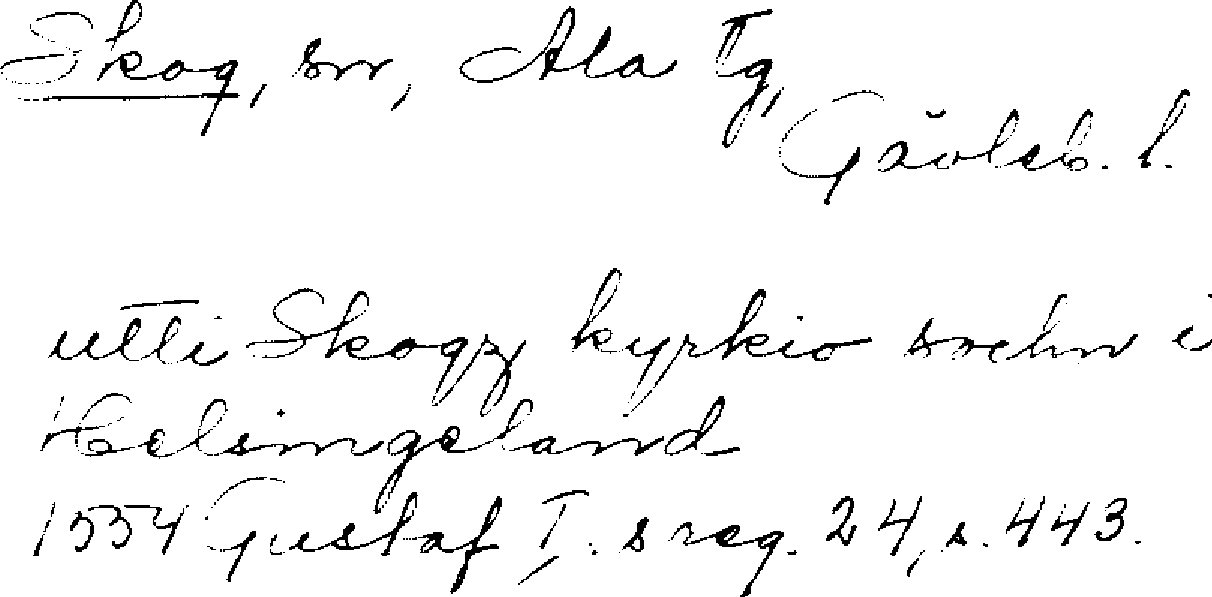 Skog, sn, Ala tg,
Gävleb. l.
utti Skogz kyrkio sochn i
Helsingeland
1554 Gustaf I. s reg. 24, s. 443.